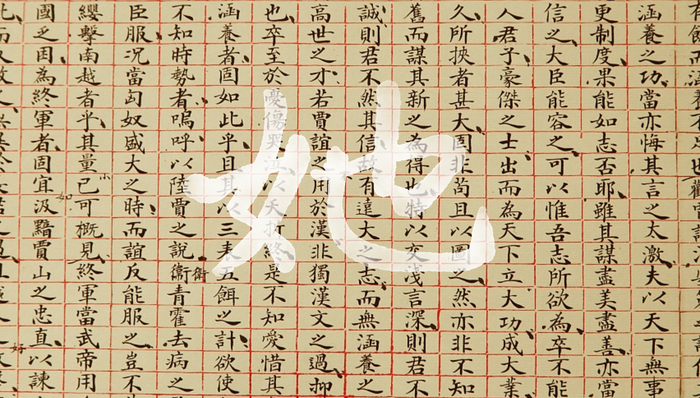 她
涵養之功、當亦悔其言之太激、夫以天下無事
更制度、果能如志否耶、雖其謀盡美盡善、亦當
信之大臣能容之、可以惟吾志所欲為、卒不能
人君子豪傑之士出而為天下立大功成大業、
久、所挾者甚大、固非苟且以圖之、然亦非不知
舊而謀其新之為得也、特以交淺言深、則君不
誠則君不然其信、故有遠大之志而無涵養之
高世之才、若賈誼之用於漢、非獨漢文之過、抑
也、卒至於憂傷哭泣、以夭折終、是不知愛惜其
涵養者固如此乎、且其以三表五餌之計、欲使
不知時勢者、嗚呼、以陸賈之說、衛青霍去病之
衛
臣服、況當匈奴盛大之時、而誼反能服之、豈不
纓擊南越者乎、其量已可概見、終軍當武帝用
小
國之因、為終軍者、固宜汲黯賈山之忠直、以諫
如
好